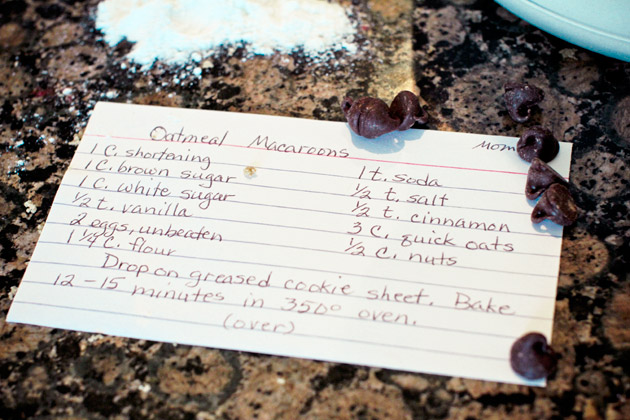 Oatmeal Macaroons Mom
1 C. shortening 1 t. soda
1 C. brown sugar ½ t. salt
1 C. white sugar ½ t. cinnamon
½ t. vanilla 3 C. quick oats
2 eggs, unbeaten ½ C. nuts
1 ¼ C. flour
Drop on greased cookie sheet. Bake
12-15 minutes in 350° oven.
(over)